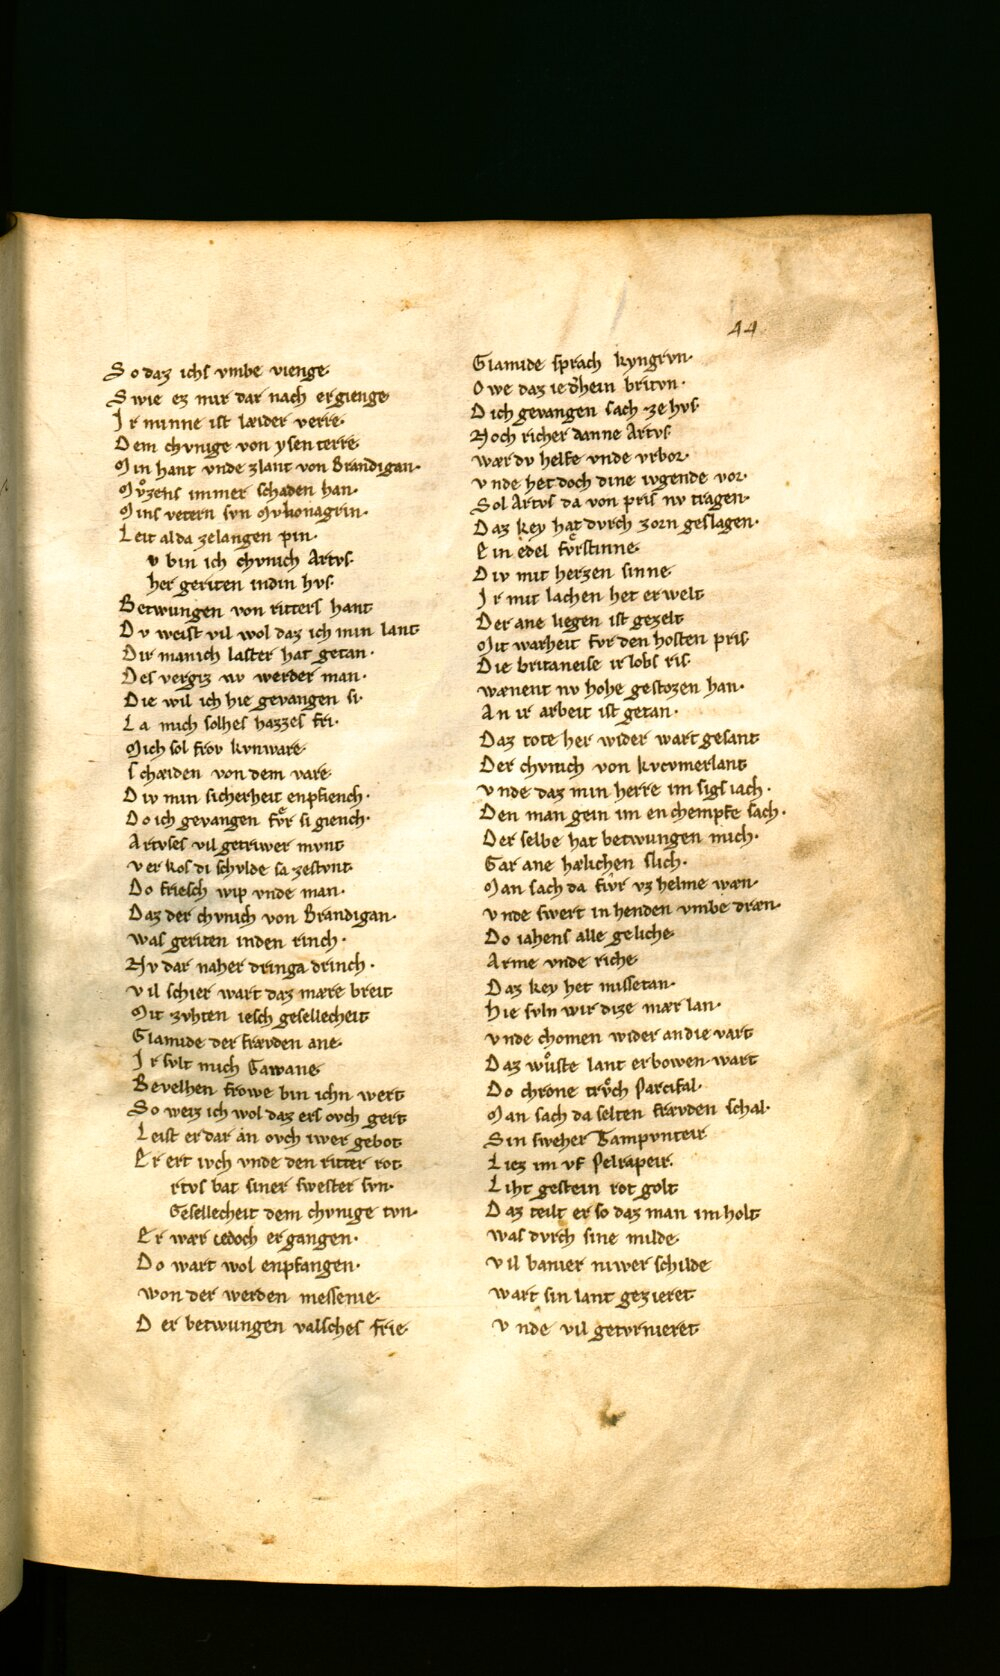 44
So daz ichs vmbe vienge
Swie ez mir dar nach ergienge
Ir minne ist læider verre
Dem chvnige von ysenterre
Min hant vnde zlant von Brandigan.
Mv̊zens immer schaden han.
Mins vetern svn Mvbonagrin.
Leit alda zelangen pin.
v bin ich chvnich Artvs.
her geriten indin hvs.
Betwungen von ritters hant
Dv weist vil wol daz ich min lant
Dir manich laster hat getan.
Des vergiz nv werder man.
Die wil ich hie gevangen si.
La mich solhes hazzes fri.
Mich sol frov kvnware.
schæiden von dem vare.
Div min sicherheit enpfiench.
Do ich gevangen fv̊r si giench.
Artvses vil getriwer mvnt
verkos di schvlde sa zestvnt.
Do friesch wip vnde man.
Daz der chvnich von Brandigan.
was geriten inden rinch.
Nv dar naher dringa drinch.
vil schier wart daz mære breit
Mit zvhten iesch gesellecheit
Glamide der frævden ane.
Ir svlt mich Gawane
Bevelhen frowe bin ichn wert
So weiz ich wol daz ers ovch gert
Leist er dar an ovch iwer gebot
Er ert ivch vnde den ritter rot
rtvs bat siner swester svn.
Gesellecheit dem chvnige tvn.
Er wær iedoch ergangen.
Do wart wol enpfangen.
won der werden messenie.
Der betwungen valsches frie.
Glamide sprach kyngrvn.
Owe daz ie dehein britvn.
Dich gevangen sach ze hvs
Noch richer danne Artvs
wær dv helfe vnde vrbor.
vnde het doch dine ivgende vor
Sol Artvs da von pris nv tragen.
Daz key hat dvrch zorn geslagen.
Ein edel fv̊rstinne.
Div mit herzen sinne
Ir mit lachen het erwelt
Der ane liegen ist gezelt
Mit warheit fvr den hosten pris
Die britaneise ir lobs ris.
wænent nv hohe gestozen han.
An ir arbeit ist getan.
Daz tote her wider wart gesant
Der chvnich von kvcvmerlant
vnde daz min herre im sigs iach.
Den man gein im en chempfe sach.
Der selbe hat betwungen mich.
Gar ane hælichen slich.
Man sach da fivr vz helme wæn.
vnde swert in henden vmbe dræn.
Do iahens alle geliche
Arme vnde riche
Daz key het missetan.
Hie svln wir dize mær lan.
vnde chomen wider an die vart
Daz wv̊ste lant erbowen wart
Do chrone trv̊ch Parcifal.
Man sach da selten frævden schal.
Sin sweher Tampvnteir
Liez im vf Pelrapeir.
Liht gestein rot golt
Daz teilt er so daz man im holt
was dvrch sine milde.
vil banier niwer schilde
wart sin lant gezieret
vnde vil getvrnieret